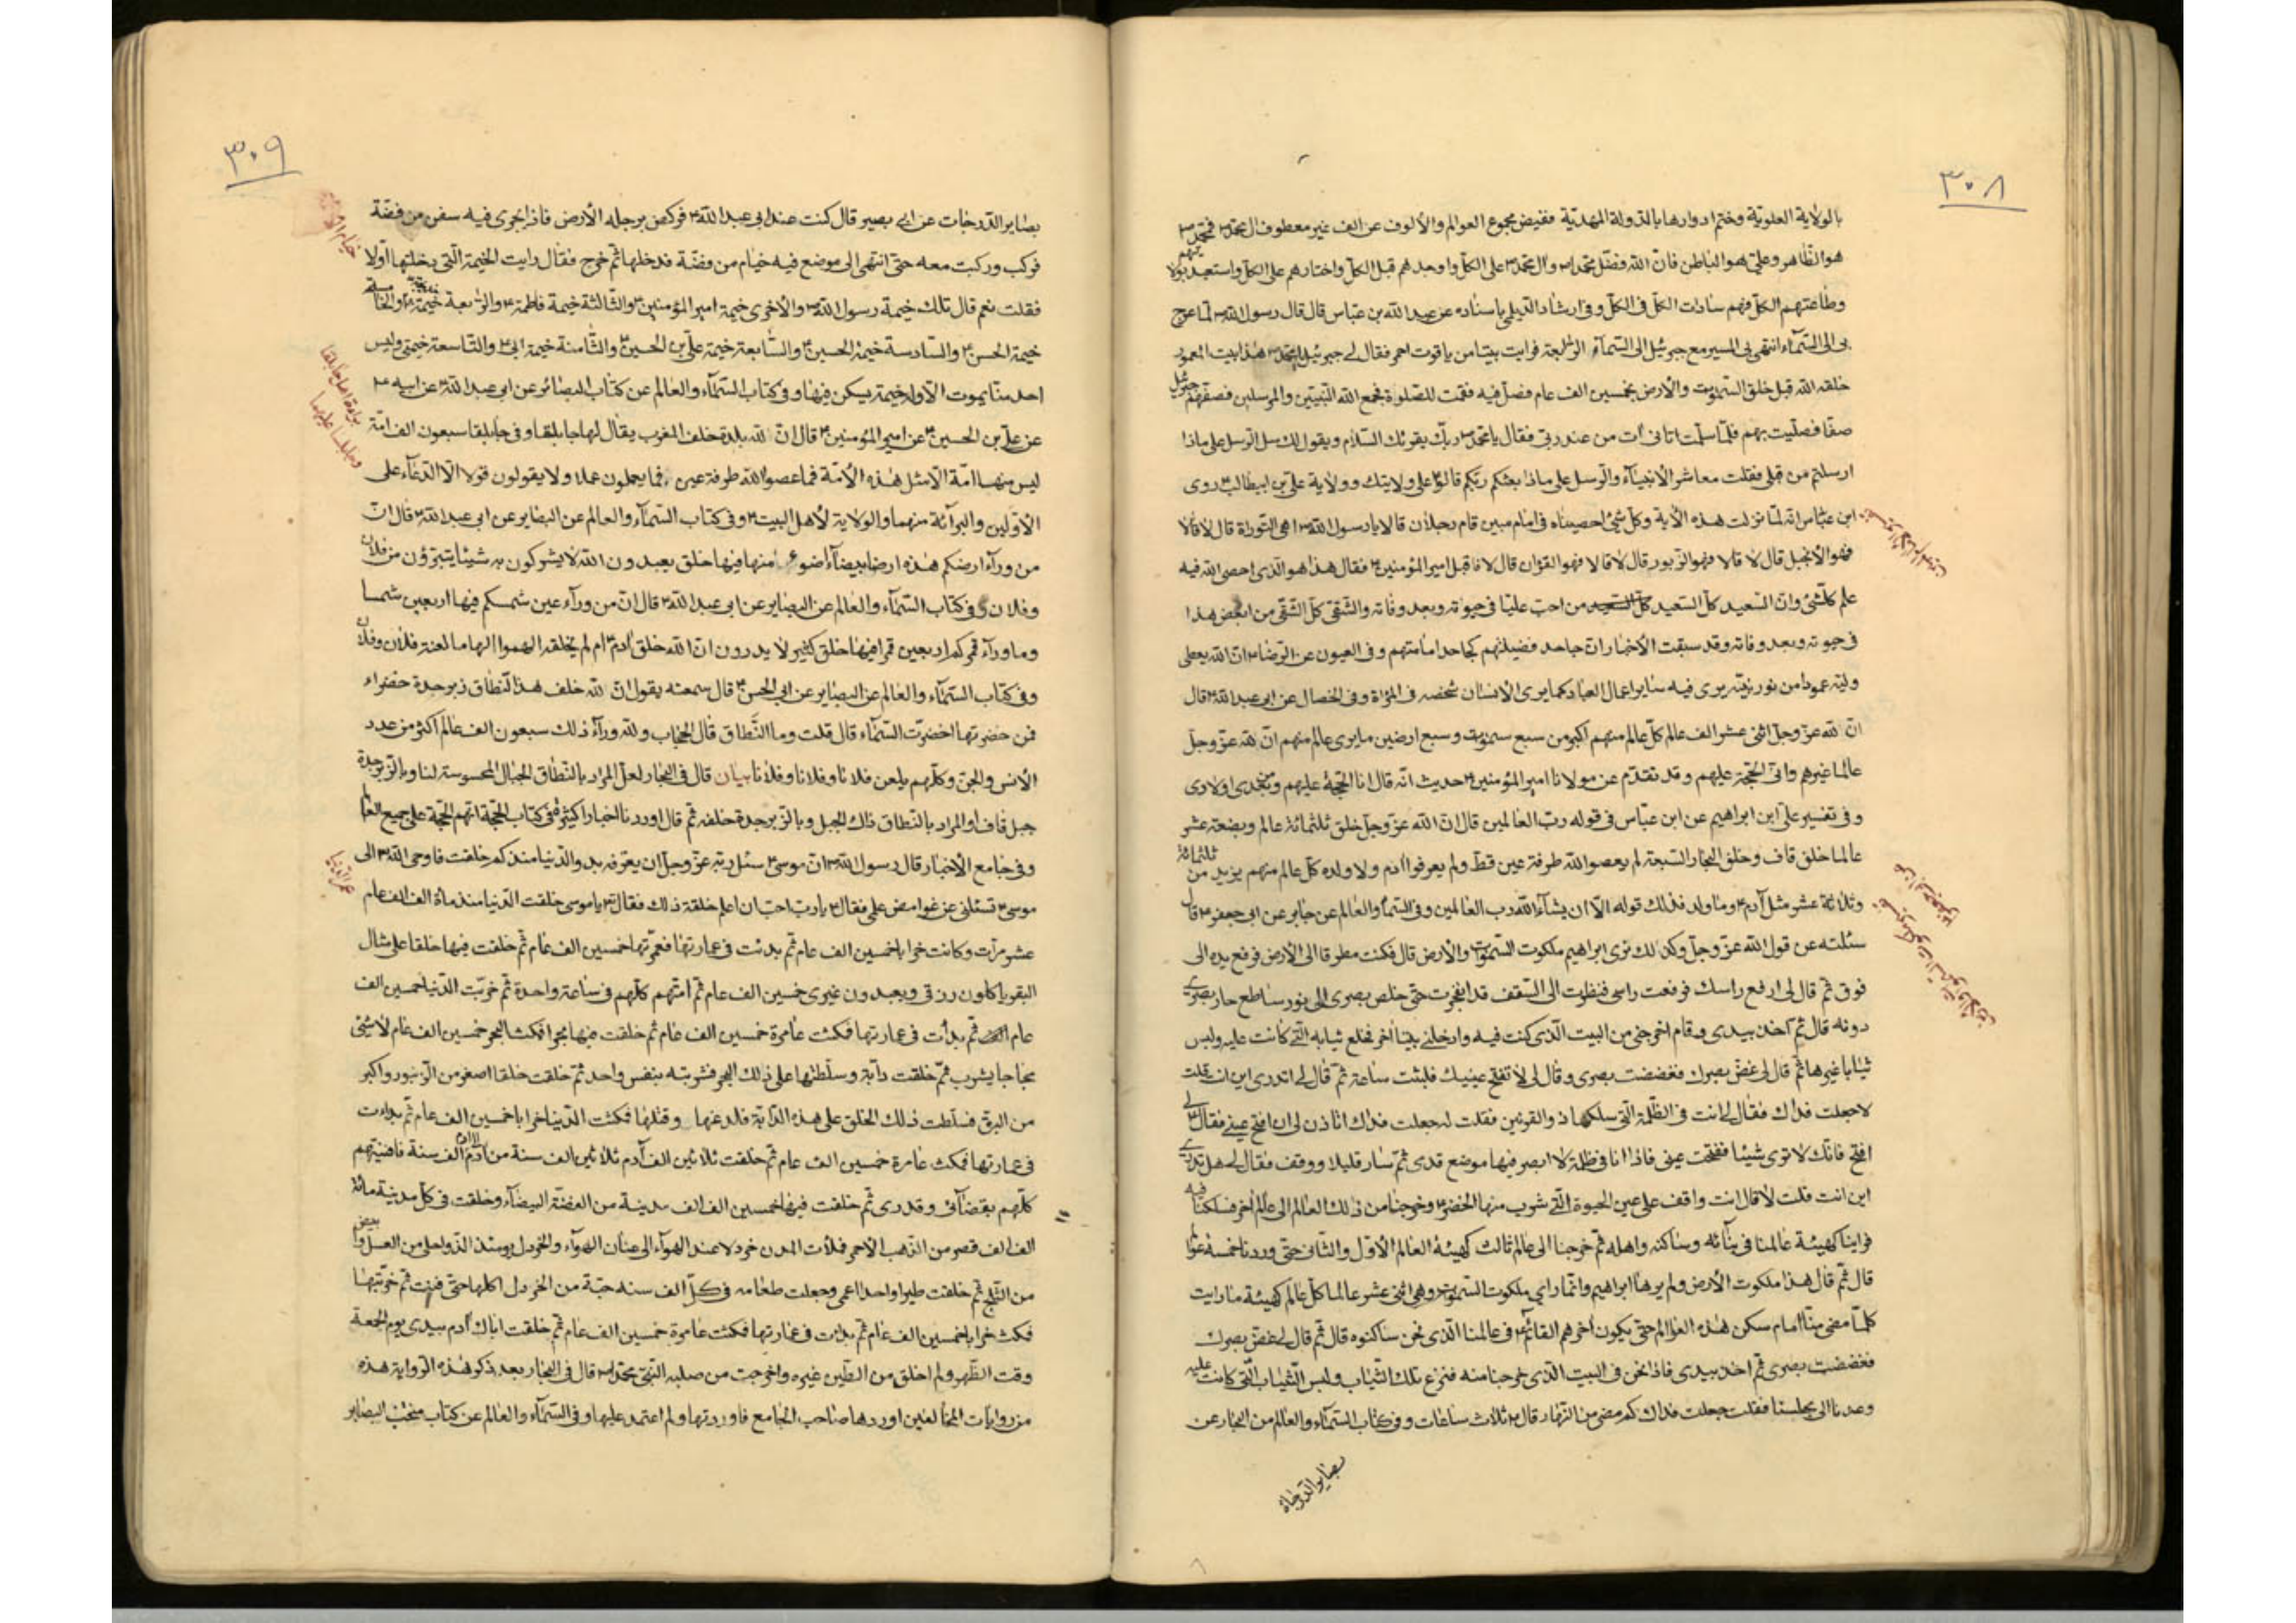 ٣٠٨
بالولاية العلوية وختم ادوارها بالدولة المهدية فقيض مجموع العوالم والألوف عن الف غير معطوف ال محمد فمحمد
هو الظاهر وعلي هو الباطن فان الله فضل محمدا وال محمد على الكل واوجدهم قبل الكل واختارهم على الكل واستعبد بولايتهم
وطاعتهم الكل فهم سادات الكل في الكل وفي ارشاد الديلمي باسناده عن عبد الله بن عباس قال قال رسول الله لما عرج
بي الى السماء انتهى بي المسير مع جبرئيل الى السماء الرابعة فرايت بيتا من ياقوت احمر فقال لي جبرئيل يا محمد هذا بيت المعمور
خلقه الله قبل خلق السموات والأرض بخمسين الف عام فصل فيه فقمت للصلوة فجمع الله النبيين والمرسلين فصفهم جبرئيل
صفا فصليت بهم فلما سلمت اتاني ات من عند ربي فقال يا محمد ربك يقرئك السلام ويقول لك سل الرسل على ماذا
ارسلتم من قبلي فقلت معاشر الأنبياء والرسل على ماذا بعثكم ربكم قالوا على ولايتك وولاية علي بن ابيطالب روى
ابن عباس انه لما نزلت هذه الآية وكل شئ احصيناه في امام مبين قام رجلان قالا يا رسول الله اهي التوراة قال لا قالا
فهو الأنجيل قال لا قالا فهو الزبور قال لا قالا فهو القرٰان قال لا فاقبل امير المؤمنين فقال هذا هو الذي احصى الله فيه
علم كلشئ وان السعيد كل السعيد كل السعيد من احب عليا في حيوته وبعد وفاته والشقي كل الشقي من ابغض هذا
في حيوته وبعد وفاته وقد سبقت الأخبار ان جاحد فضيلتهم كجاحد امامتهم وفي العيون عن الرضا ان الله يعطي
وليه عمودا من نور بينه يرى فيه ساير اعمال العباد كما يرى الانسان شخصه في المرٰاة وفي الخصال عن ابي عبد الله قال
ان لله عز وجل اثنى عشر الف عالم كل عالم منهم اكبر من سبع سموات وسبع ارضين ما يرى عالم منهم ان لله عز وجل
عالما غيرهم واني الحجة عليهم وقد تقدم عن مولانا امير المؤمنين حديث انه قال انا الحجة عليهم ومن بعدي اولادي
وفي تفسير علي ابن ابراهيم عن ابن عباس في قوله رب العالمين قال ان الله عز وجل خلق ثلثمائة عالم وبضعة عشر
عالما خلق قاف وخلق البحار السبعة لم يعصوا الله طرفة عين قط ولم يعرفوا ادم ولا ولده كل عالم منهم يزيد من ثلثمائة
وثلاثة عشر مثل آدم وما ولد فذلك قوله الا ان يشآء الله رب العالمين وفي السماء والعالم عن جابر عن ابي جعفر قال
سئلته عن قول الله عز وجل وكذلك نري ابراهيم ملكوت السموات والأرض قال فكنت مطرقا الى الأرض فرفع يده الى
فوق ثم قال لي ارفع راسك فرفعت راسي فنظرت الى السقف قد انفجرت حتى خلص بصري الى نور ساطع حار بصري
دونه قال ثم اخذ بيدي وقام اخرجني من البيت الذي كنت فيه وادخلني بيتا اخر فخلع ثيابه التي كانت عليه ولبس
ثيابا غيرها ثم قال لي غض بصرك فغضضت بصري وقال لي لا تفتح عينيك فلبثت ساعة ثم قال لي اتدري اين انت قلت
لا جعلت فداك فقال لي انت في الظلمة التي سلكها ذو القرنين فقلت له جعلت فداك اتاذن لي ان افتح عيني فقال لي
افتح فانك لا ترى شيئا ففتحت عيني فاذا انا في ظلمة لا ابصر فيها موضع قدمي ثم سار قليلا ووقف فقال لي هل تدري
اين انت قلت لا قال انت واقف على عين الحيوة التي شرب منها الخضر وخرجنا من ذلك العالم الى عالم اخر فسلكنا فيه
فراينا كهيئة عالمنا في بنائه وساكنه واهله ثم خرجنا الى عالم ثالث كهيئة العالم الأول والثاني حتى وردنا خمسة عوالم
قال ثم قال هذا ملكوت الأرض ولم يرها ابراهيم وانما راى ملكوت السموات وهي اثنى عشر عالما كل عالم كهيئة ما رايت
كلما مضى منا امام سكن هذه العوالم حتى يكون اخرهم القائم في عالمنا الذي نحن ساكنوه قال ثم قال لي غض بصرك
فغضضت بصري ثم اخذ بيدي فاذا نحن في البيت الذي خرجنا منه فنزع تلك الثياب ولبس الثياب التي كانت عليه
وعدنا الى مجلسنا فقلت جعلت فداك كم مضى من النهار قال ثلاث ساعات وفي كتاب السماء والعالم من البحار عن
بصاير الدرجات
٣٠٩
بصاير الدرجات عن ابي بصير قال كنت عند ابي عبد الله فركض برجله الأرض فاذا بحر فيه سفن من فضة
فركب وركبت معه حتى انتهى الى موضع فيه خيام من فضة فدخلها ثم خرج فقال رايت الخيمة التي دخلتها اولا
فقلت نعم قال تلك خيمة رسول الله والأخرى خيمة امير المؤمنين والثالثة خيمة فاطمة والرابعة خيمة خديجة والخامسة
خيمة الحسن والسادسة خيمة الحسين والسابعة خيمة علي بن الحسين والثامنة خيمة ابي والتاسعة خيمتي وليس
احد منا يموت الا وله خيمة يسكن فيها وفي كتاب السماء والعالم عن كتاب البصائر عن ابي عبد الله عن ابيه
عن علي بن الحسين عن امير المؤمنين قال ان لله بلدة خلف المغرب يقال لها جابلقا وفي جابلقا سبعون الف امة
ليس منها امة الا مثل هذه الأمة فما عصوا الله طرفة عين فما يعملون عملا ولا يقولون قولا الا الدعاء على
الأولين والبرآئة منهما والولاية لأهل البيت وفي كتاب السماء والعالم عن البصاير عن ابي عبد الله قال ان
من ورآء ارضكم هذه ارضا بيضآء ضوء منها فيها خلق يعبدون الله لا يشركون به شيئا يتبرؤن من فلان
وفلان وفي كتاب السماء والعالم عن البصاير عن ابي عبد الله قال ان من ورآء عين شمسكم فيها اربعين شمسا
وما ورآء قمركم اربعين قمرا فيها خلق كثير لا يدرون ان الله خلق ادم ام لم يخلقه الهموا الهاما لعنة فلان وفلان
وفي كتاب السماء والعالم عن البصاير عن ابي الحسن قال سمعته يقول ان لله خلف هذا النطاق زبرجدة خضراء
فمن خضرتها اخضرت السماء قال قلت وما النطاق قال الحجاب ولله ورآء ذلك سبعون الف عالم اكثر من عدد
الأنس والجن وكلهم يلعن فلانا وفلانا وفلانا بيان قال في البحار لعل المراد بالنطاق الجبال المحسوسة لنا وبالزبرجدة
جبل قاف او المراد بالنطاق ذاك الجبل وبالزبرجدة خلفه ثم قال اوردنا اخبارا كثيرة في كتاب الحجة انهم الحجة على جميع العوالم
وفي جامع الأخبار قال رسول الله ان موسى سئل ربه عز وجل ان يعرفه بدو الدنيا منذ كم خلقت فاوحى الله الى
موسى تسئلني عن غوامض علمي فقال يا رب احب ان اعلم خلقة ذلك فقال يا موسى خلقت الدنيا منذ ماة الف الف عام
عشر مرات وكانت خرابا خمسين الف عام ثم بدئت في عمارتها فعمرتها خمسين الف عام ثم خلقت فيها خلقا على مثال
البقر ياكلون رزقي ويعبدون غيري خمسين الف عام ثم امتهم كلهم في ساعة واحدة ثم خربت الدنيا خمسين الف
عام ثم بدأت في عمارتها فمكثت عامرة خمسين الف عام ثم خلقت فيها بحرا فمكث البحر خمسين الف عام لا شئ
مجاجا يشرب ثم خلقت دآبة وسلطتها على ذلك البحر فشربته بنفس واحد ثم خلقت خلقا اصغر من الزنبور واكبر
من البق فسلطت ذلك الخلق على هذه الدابة فلدغها وقتلها فمكثت الدنيا خرابا خمسين الف عام ثم بدات
في عمارتها فمكث عامرة خمسين الف عام ثم خلقت ثلاثين الف آدم ثلاثين الف سنة من آدم الى آدم الف سنة فافنيتهم
كلهم بقضآئي وقدري ثم خلقت فيها خمسين الف الف مدينة من الفضة البيضآء وخلقت في كل مدينة مائة
الف الف قصر من الذهب الأحمر فملأت المدن خردلا عند الهوآء الى عنان الهوآء والخردل يومئذ الذ واحلى من العسل وابيض
من الثلج ثم خلقت طيرا واحدا اعمى وجعلت طعامه في كل الف سنة حبة من الخردل اكلها حتى فنيت ثم خربتها
فمكث خرابا خمسين الف عام ثم بدات في عمارتها فمكثت عامرة خمسين الف عام ثم خلقت اباك آدم بيدي يوم الجمعة
وقت الظهر ولم اخلق من الطين غيره واخرجت من صلبه النبي محمدا قال في البحار بعد ذكر هذه الرواية هذه
من روايات المخالفين اوردها صاحب الجامع فاوردتها ولم اعتمد عليها وفي السماء والعالم عن كتاب منتخب البصاير
عمر الدنيا